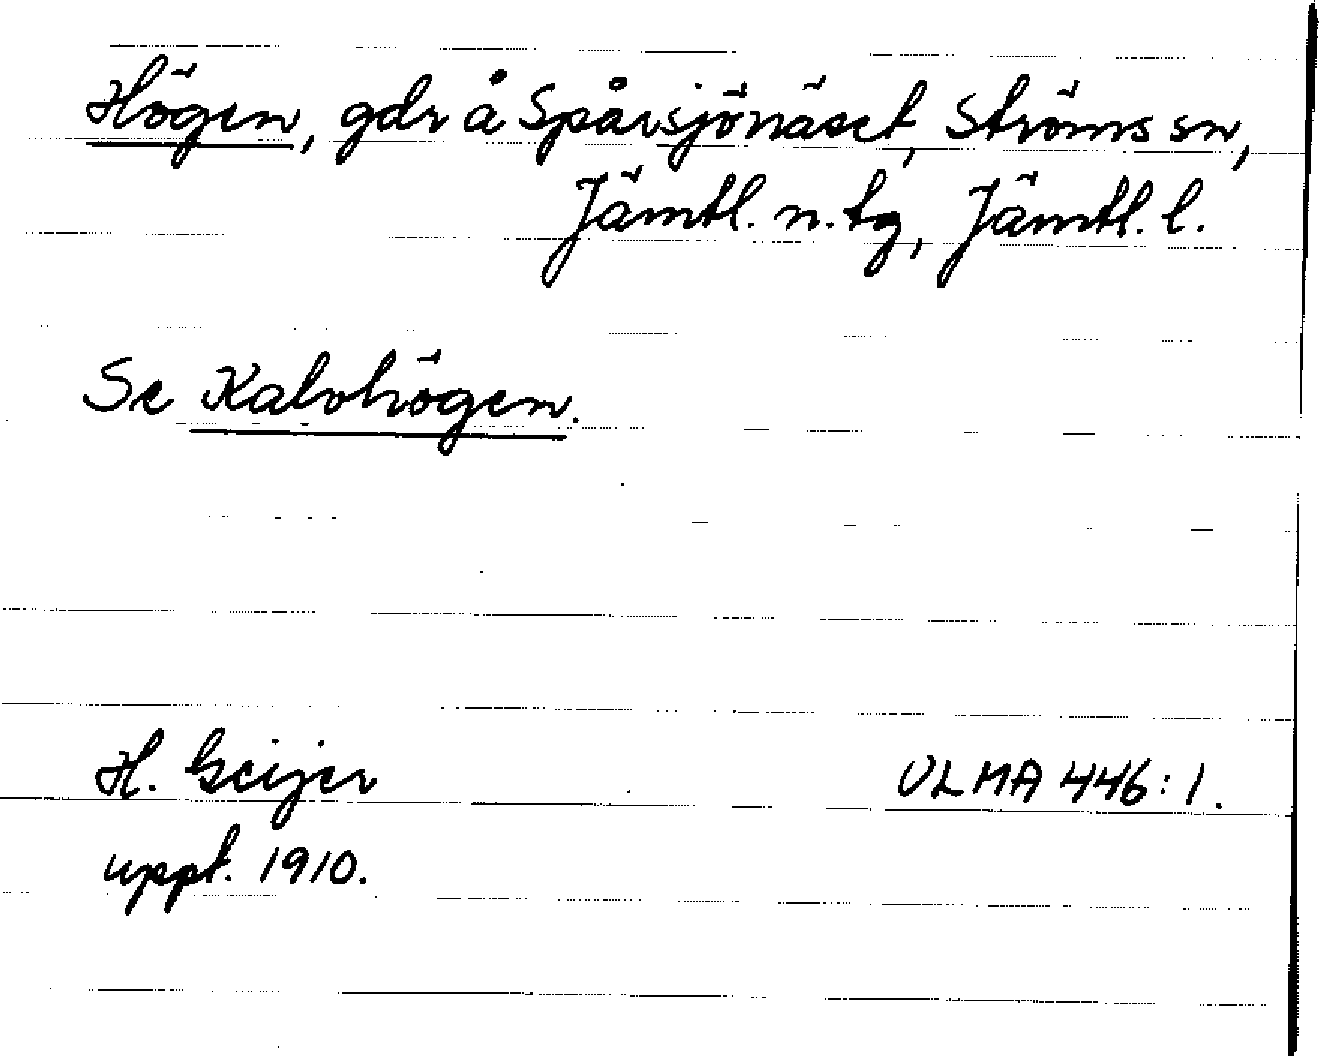 Högen, gdr å Spårsjönäset, Ströms sn,
Jämtl. n. tg, Jämtl. l.
Se Kalvhögen.
H. Geijer
uppt. 1910.
ULMA 446:1.